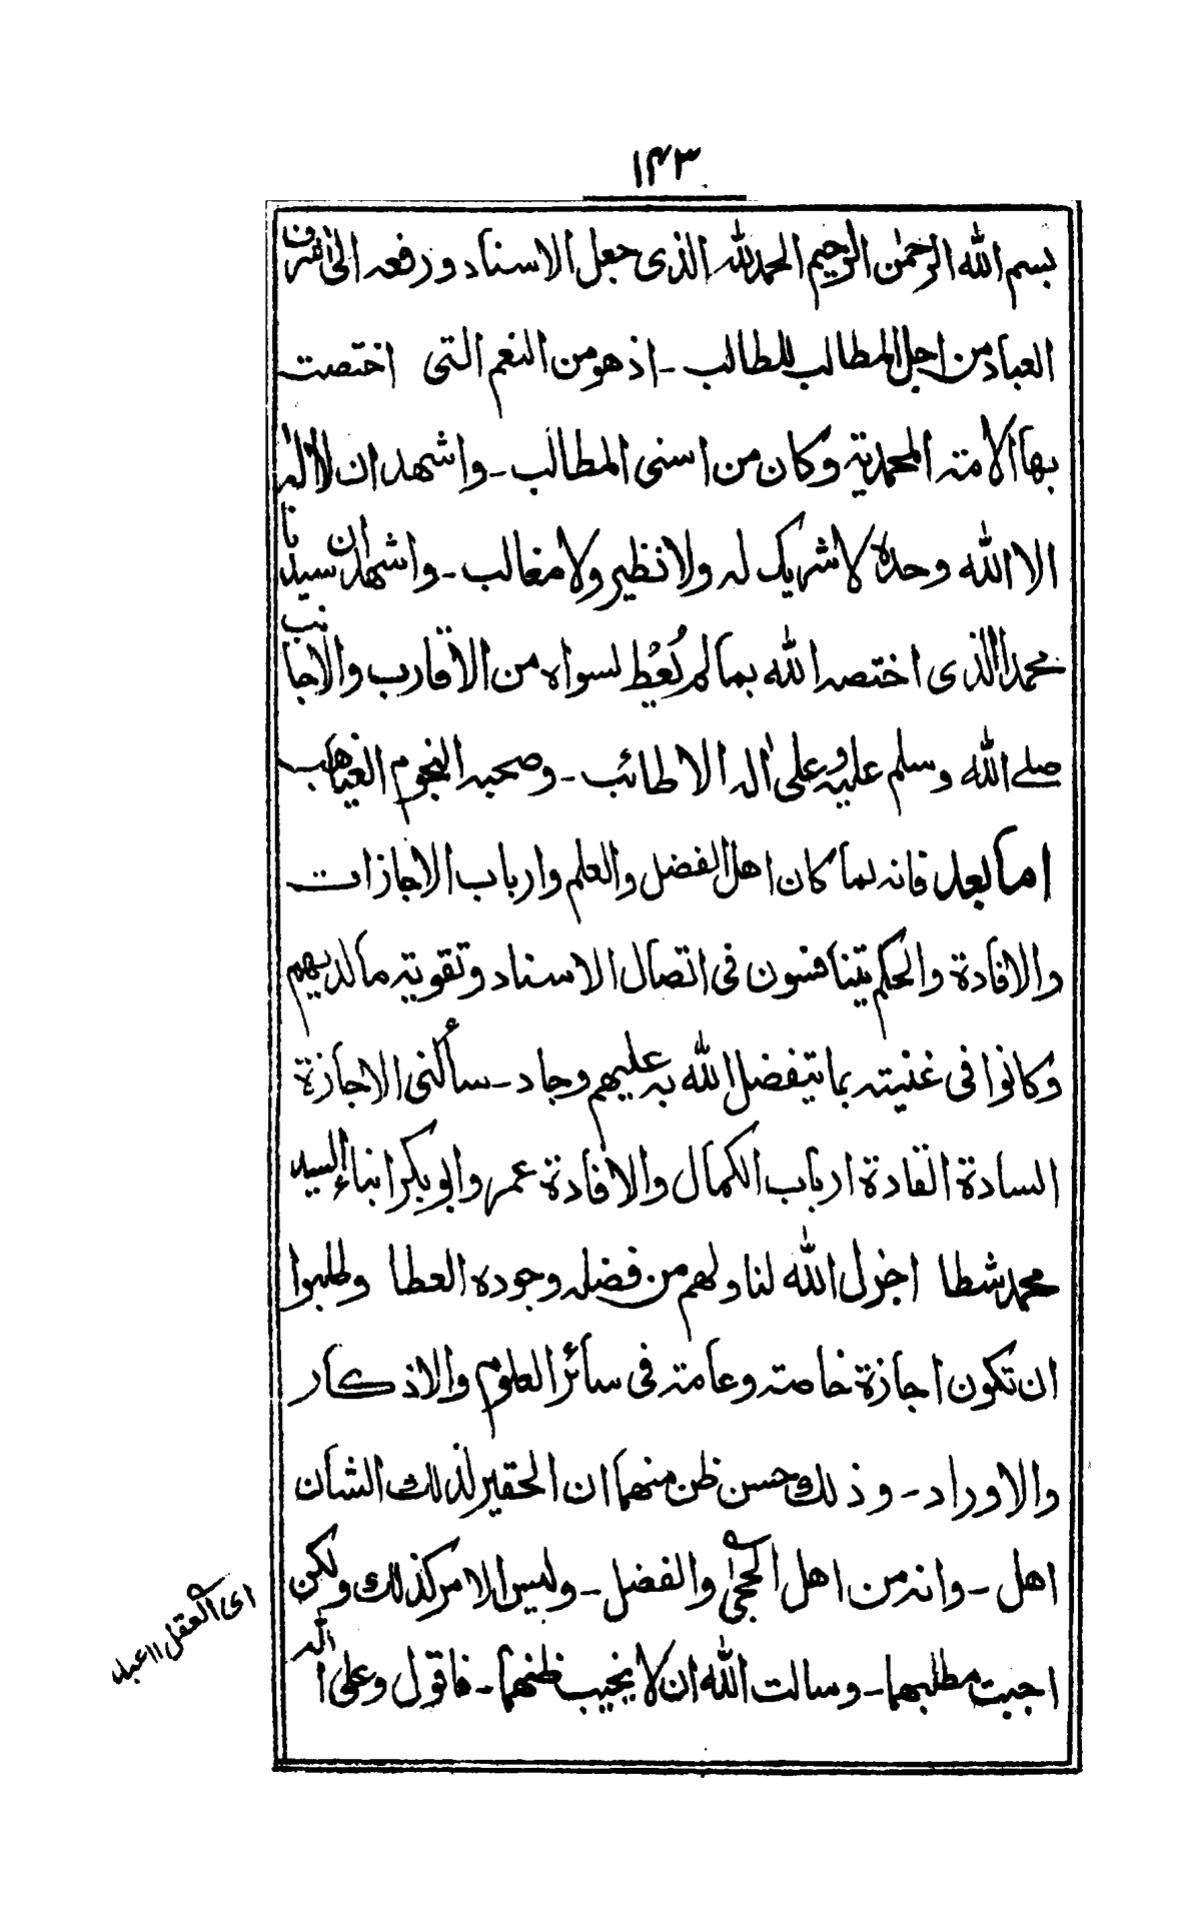 ١٤٣
بسم الله الرحمٰن الرحيم الحمد لله الذى جعل الاسناد ورفعه الىٰ اشرف
العباد من اجل المطالب للطالب ـ اذ هو من النعم التى اختصت
بها الامته المحمديته وكان من اسنى المطالب ـ واشهد ان لا الٰه
الا الله وحده لا شريك له ولا نظير ولا مغالب ـ واشهد ان سيدنا
محمدا الذى اختصه الله بما لم يُعُط لسواه من الاقارب والاجانب
صلے الله وسلم عليه وعلىٰ اٰله الاطائب ـ وصحبه النجوم الغياهب
اما بعد فانه لما كان اهل الفضل والعلم وارباب الاجازات
والافادة والحكم يتنافسون فى اتصال الاسناد وتقويته ما لديهم
وكانوا فى غنيته بما يتفضل الله به عليهم وجاد ـ سألنى الاجازة
السادة القادة ارباب الكمال والافادة عمر وابو بكر ابناء السيد
محمد شطا اجزل الله لنا ولهم من فضله وجوده العطا وطلبوا
ان تكون اجازة خاصته وعامته فى سائر العلوم والاذكار
والاوراد ـ وذلك حسن ظن منهما ان الحقير لذلك الشان
اهل ـ وانه من اهل الحجىٰ والفضل ـ وليس الامر كذلك ولكن
اجبت مطلبهما ـ وسالت الله ان لا يخيب ظنهما ـ فاقول وعلى الله
اى العقل ١١ عبد